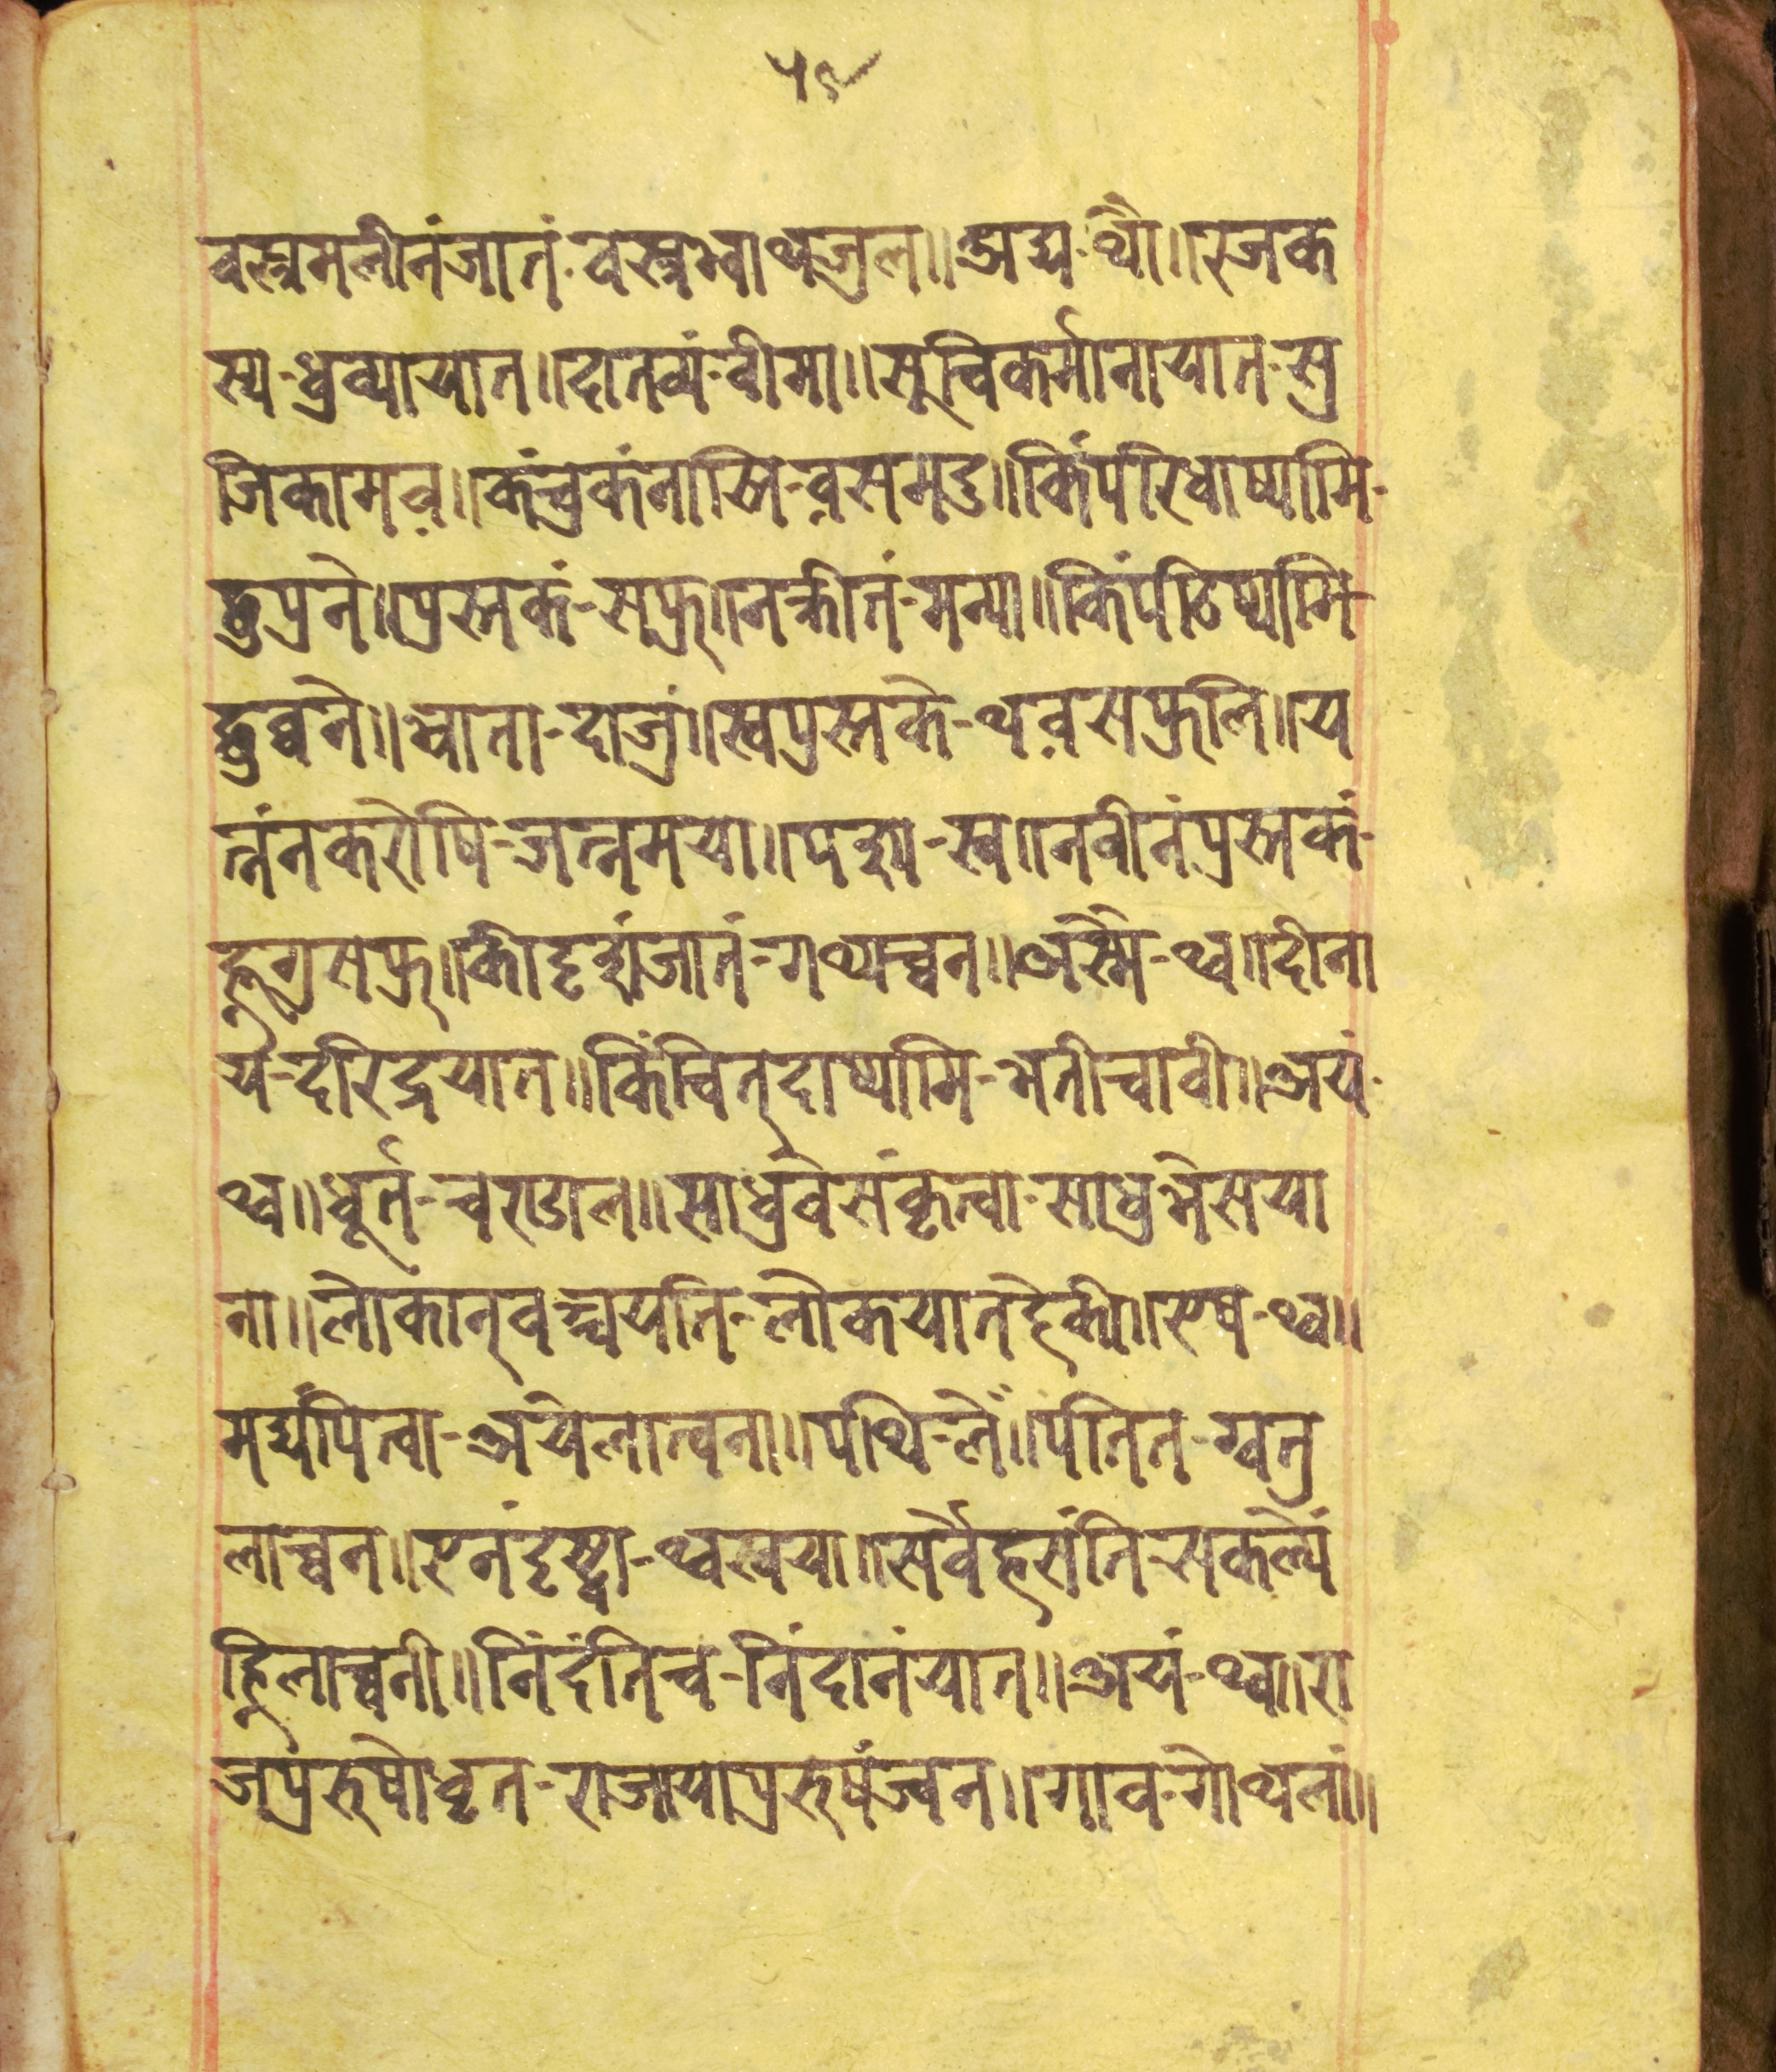 ५९
वस्त्रमलीनंजातं-वस्त्रम्वाथुजुल॥अद्य-थौं॥रजक
स्य-धुव्यायात॥दातव्यं-वीमा॥सूचिकर्मानायात-सु
जिकामय़्॥कंचुकंनास्ति-व़समदु॥किंपरिधाष्यामि-
छुपुने॥पुस्तकं-सफु॥नक्रीतं-मन्या॥किंपठिष्यामि-
छुब्वने॥भ्राता-दाजुं॥स्वपुस्तके-थव़सफुलि॥य
त्नंनकरोषि-जत्नमया॥पश्य-स्व॥नवीनंपुस्तकं-
ह्नुगुसफु॥कीदृशंजातं-गथ्यच्वन॥अस्मै-थ्व॥दीना
य-दरिद्रयात॥किंचित्दाष्यामि-भतीचावी॥अयं-
थ्व॥धूर्त-चराडाल॥साधुवेसंकृत्वा-साधुभेसया
ना॥लोकान्वञ्चयति-लोकयातहेकी॥एष-थ्व॥
मद्यंपित्वा-अयेलात्वना॥पथि-लँ॥पतित-ग्वतु
लाच्वन॥एनंदृष्ट्वा-थ्वस्वया॥सर्वेहसंति-सकल्यें
ह्निलाच्वनी॥निंदंतिच-निंदानंयात॥अयं-थ्व॥रा
जपुरुषोधृत-राजायापुरुषंज्वन॥गाव-गोथलां॥